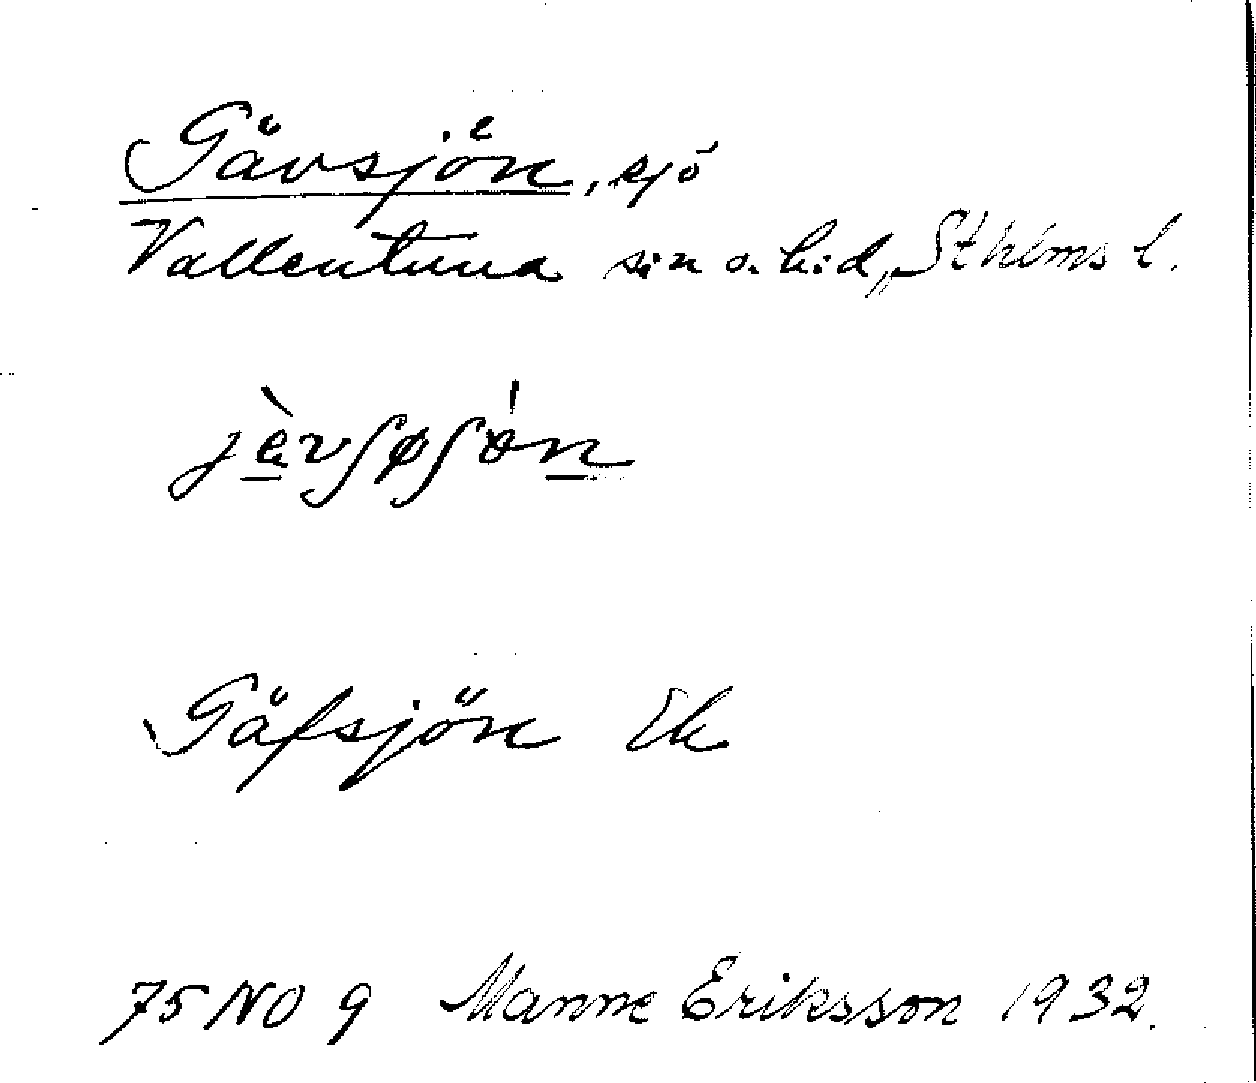 Gävsjön, sjö
Vallentuna sn o. hd, Sthlms l.
Gäfsjön Ek
75 NO 9 Manne Eriksson 1932.